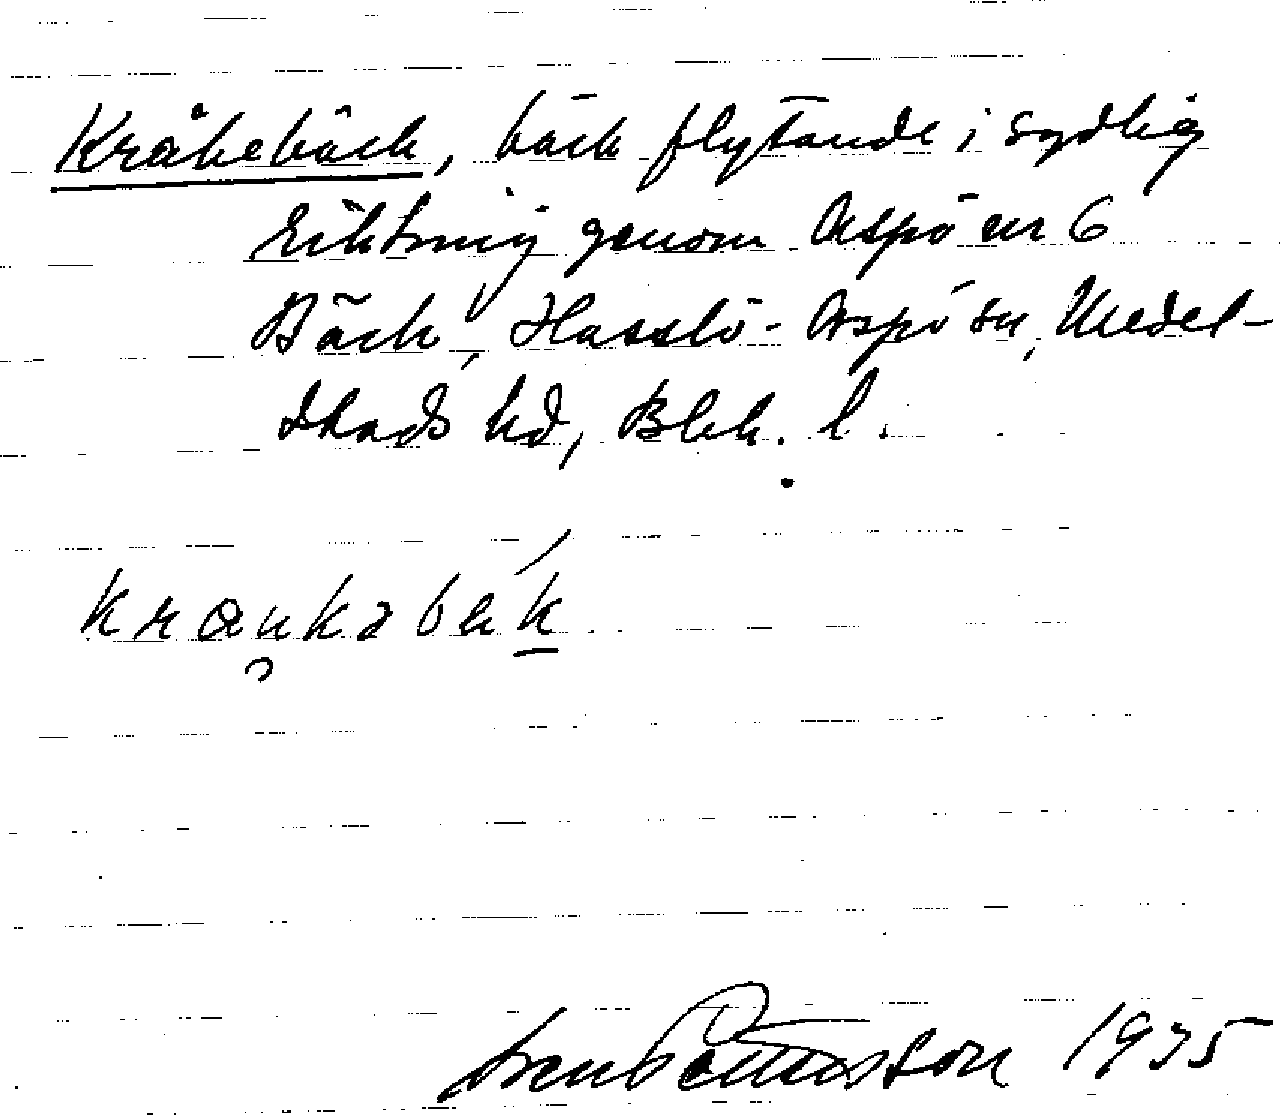 Kråkebäck, bäck flytande i sydlig
riktning genom Aspö nr 6
Bäck, Hasslö-Aspö sn, Medel-
stads hd,Blek. l.
kraukabäk
Sven Pettersson 1935